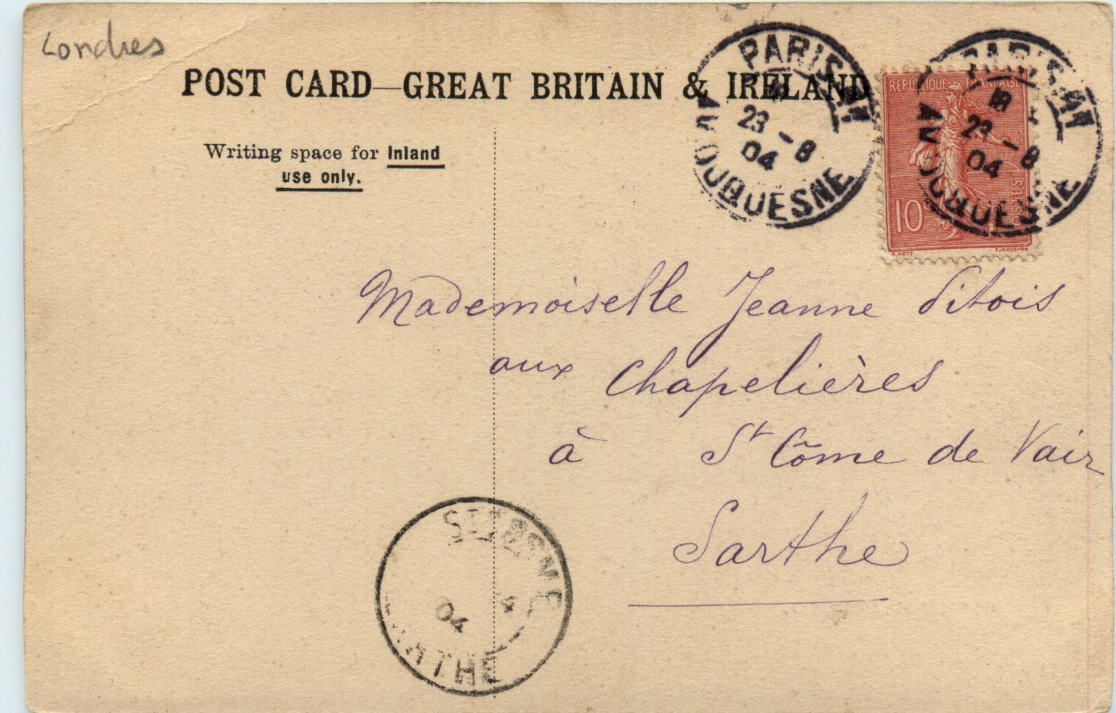 Londres
POST CARD—GREAT BRITAIN & IRELAND
Writing space for Inland
use only.
PARIS
18
23 - 8
04
AV DUQUESNE
PARIS
18
23 - 8
04
AV DUQUESNE
RÉPUBLIQUE FRANÇAISE
10
POSTES
Mademoiselle Jeanne
aux Chapelières
à St Côme de Vair
Sarthe
04
SARTHE